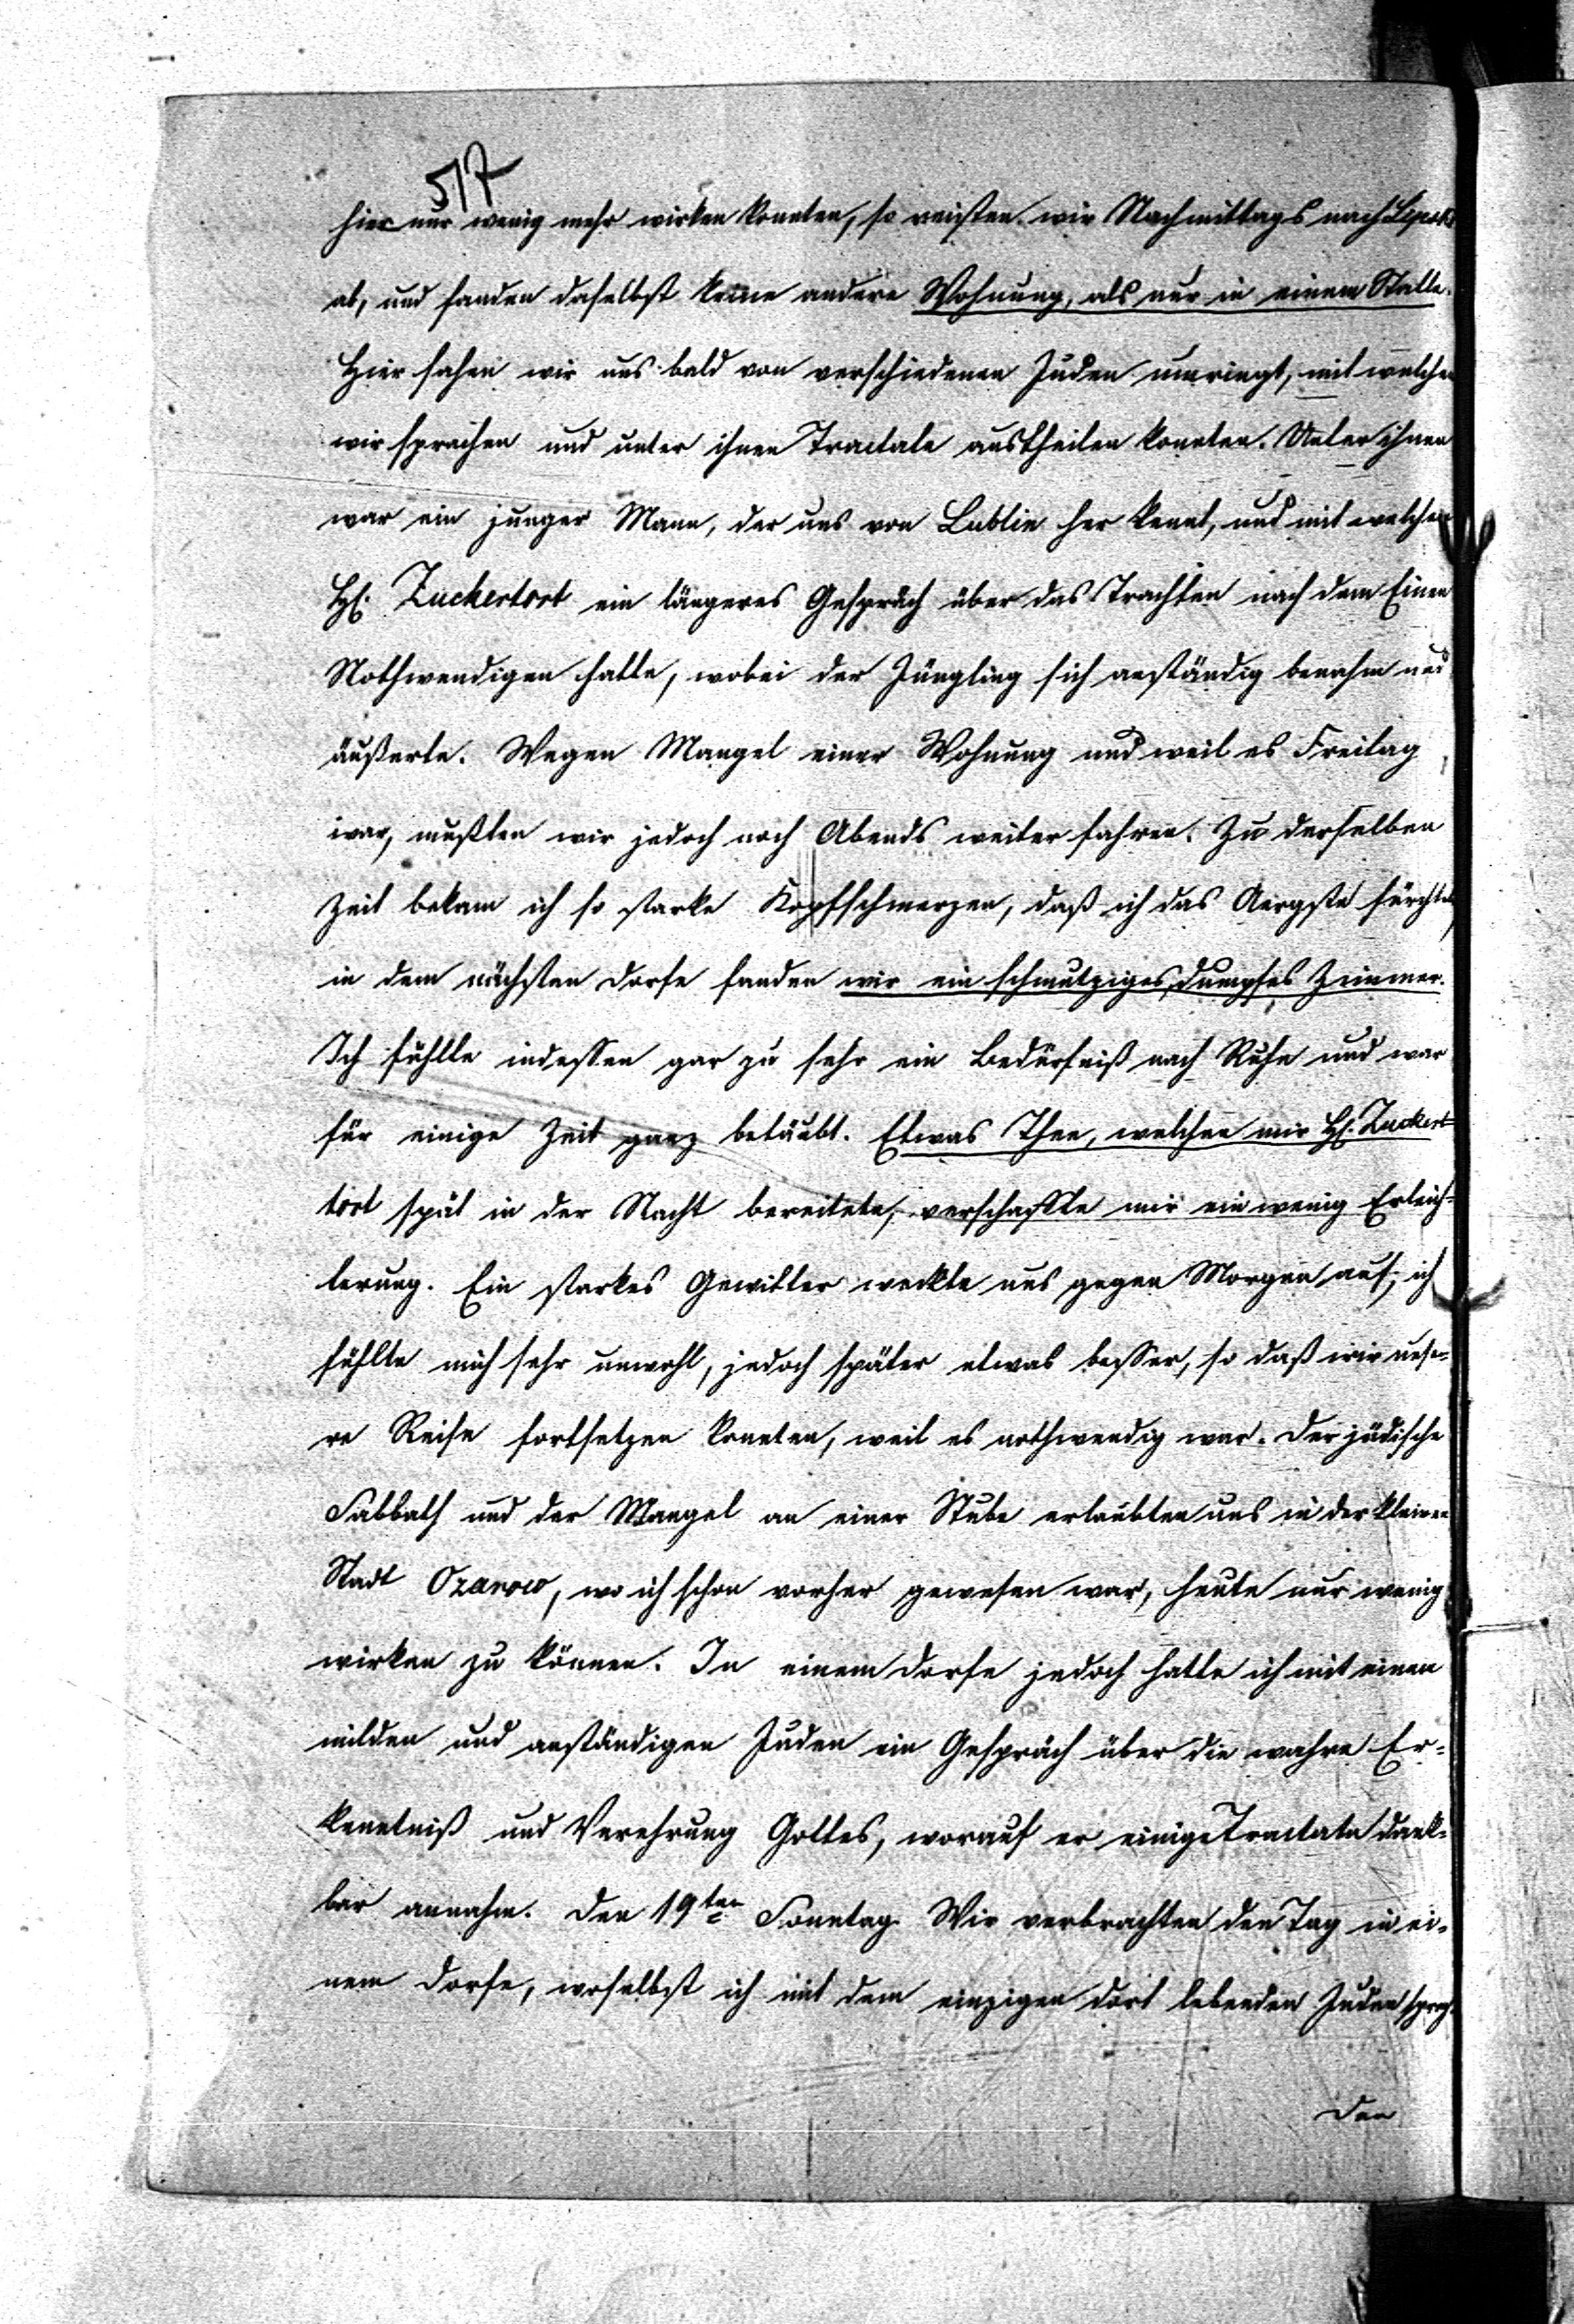 517
hier nur wenig mehr wirken konnten, so reisten wir Nachmittags nach
ab, und fanden daselbst keine andere Wohnung, als nur in einem Stalle.
Hier sahen wir uns bald von verschiedenen Juden umringt, mit welchen
wir sprachen und unter ihnen Tractate austheilen konnten. Unter ihnen
war ein junger Mann, der uns von Lublin her kennt, und mit welchem
H. Zuckertort ein längeres Gespräch über das Trachten nach dem Einen
Nothwendigen hatte, wobei der Jüngling sich anständig benahm und
äußerte. Wegen Mangel einer Wohnung und weil es Freitag
war, mußten wir jedoch noch Abends weiter fahren. Zu derselben
Zeit bekam ich so starke Kopfschmerzen, daß ich das Aergste fürchtete,
in dem nächsten Dorfe fanden wir ein schmutziges, dumpfes Zimmer.
Ich fühlte indessen gar zu sehr ein Bedürfniß nach Ruhe und war
für einige Zeit ganz betäubt. Etwas Thee, welchen mir H. Zuckert
tort spät in der Nacht bereitete, verschaffte mir ein wenig Erleich=
terung. Ein starkes Gewitter weckte uns gegen Morgen auf, ich
fühlte mich sehr unwohl, jedoch später etwas besser, so daß wir unse=
re Reise fortsetzen konnten, weil es nothwendig war. Der jüdische
Sabbath und der Mangel an einer Stube erlaubten uns in der kleinen
Stadt Ozarow, wo ich schon vorher gewesen war, heute nur wenig
wirken zu können. In einem Dorfe jedoch hatte ich mit einen
milden und anständigen Juden ein Gespräch über die wahre Er=
kenntniß und Verehrung Gottes, worauf er einige Tractate dank=
bar annahm. Den 19ten Sonntag. Wir verbrachten den Tag in ei=
nem Dorfe, woselbst ich mit dem einzigen dort lebenden Juden sprach.
Den